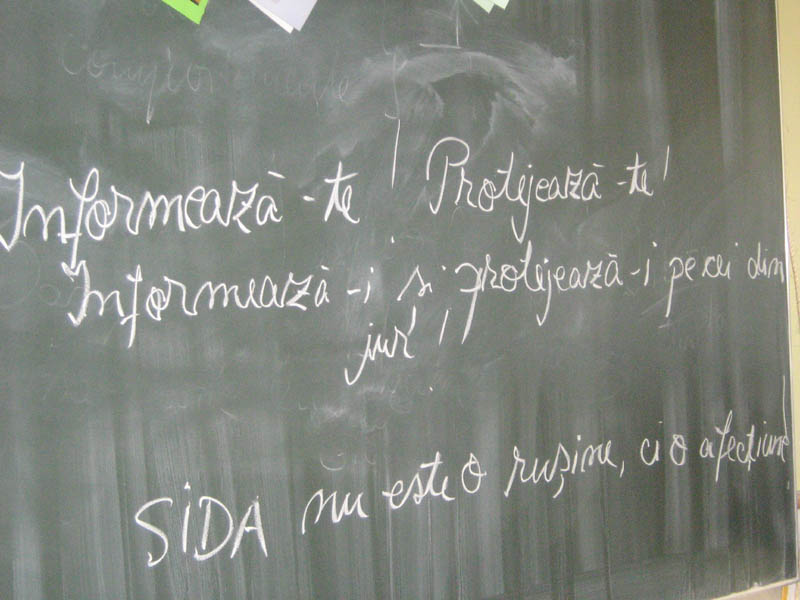 Informează-te! Protejează-te!
Informează-i și protejează-i pe cei din
jur!!
SIDA nu este o rușine, ci o afecțiune!